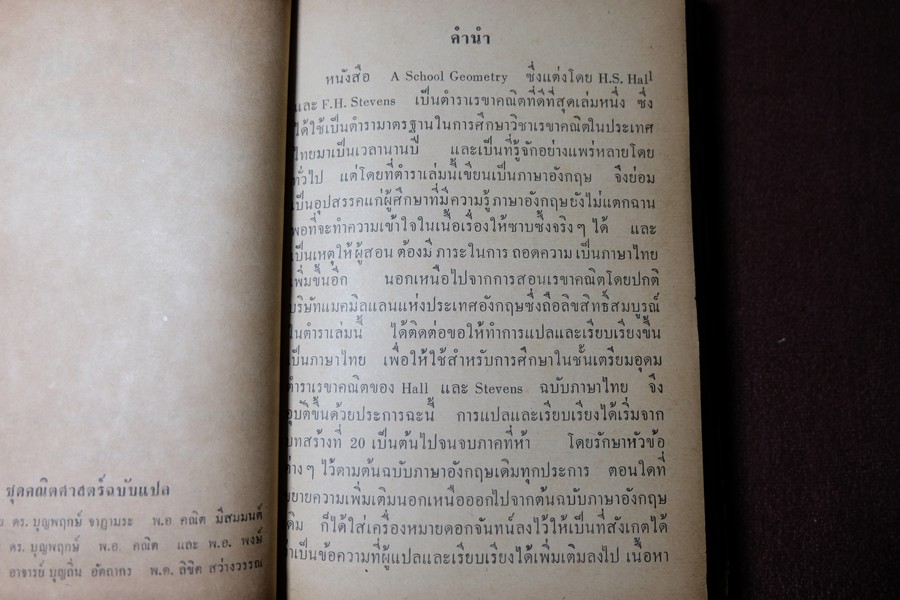 ชุดคณิตศาสตร์ฉบับแปล
ดร. บุญพฤกษ์ จาฏามระ พ.อ คณิต มีสมมนต์
ดร. บุญพฤกษ์ พ.อ. คณิต และ พ.อ. พงษ์
อาจารย์ บุญถิ่น อัตถากร พ.ต. ลิขิต สว่างวรรณ
คำนำ
หนังสือ A School Geometry ซึ่งแต่งโดย H.S. Hall
และ F.H. Stevens เป็นตำราเรขาคณิตที่ดีที่สุดเล่มหนึ่ง ซึ่ง
ได้ใช้เป็นตำรามาตรฐานในการศึกษาวิชาเรขาคณิตในประเทศ
ไทยมาเป็นเวลานานปี และเป็นที่รู้จักอย่างแพร่หลายโดย
ทั่วไป แต่โดยที่ตำราเล่มนี้เขียนเป็นภาษาอังกฤษ จึงย่อม
เป็นอุปสรรคแก่ผู้ศึกษาที่มีความรู้ภาษาอังกฤษยังไม่แตกฉาน
พอที่จะทำความเข้าใจในเนื้อเรื่องให้ซาบซึ้งจริง ๆ ได้ และ
เป็นเหตุให้ผู้สอน ต้องมี ภาระในการ ถอดความ เป็นภาษาไทย
เพิ่มขึ้นอีก นอกเหนือไปจากการสอนเรขาคณิตโดยปกติ
บริษัทแมคมิลแลนแห่งประเทศอังกฤษซึ่งถือลิขสิทธิ์สมบูรณ์
ในตำราเล่มนี้ ได้ติดต่อขอให้ทำการแปลและเรียบเรียงขึ้น
เป็นภาษาไทย เพื่อให้ใช้สำหรับการศึกษาในชั้นเตรียมอุดม
ตำราเรขาคณิตของ Hall และ Stevens ฉบับภาษาไทย จึง
อุบัติขึ้นด้วยประการฉะนี้ การแปลและเรียบเรียงได้เริ่มจาก
บทสร้างที่ 20 เป็นต้นไปจนจบภาคที่ห้า โดยรักษาหัวข้อ
ต่าง ๆ ไว้ตามต้นฉบับภาษาอังกฤษเดิมทุกประการ ตอนใดที่
ขยายความเพิ่มเติมนอกเหนือออกไปจากต้นฉบับภาษาอังกฤษ
เดิม ก็ได้ใส่เครื่องหมายดอกจันทน์ลงไว้ให้เป็นที่สังเกตได้
ว่าเป็นข้อความที่ผู้แปลและเรียบเรียงได้เพิ่มเติมลงไป เนื้อหา